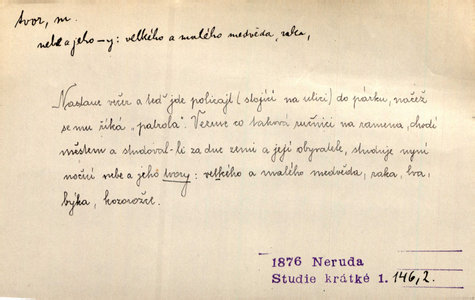 tvor, m.
nebe a jeho –y: velkého a malého medvěda, raka,
Nastane večer a teď jde policajt (stojící na ulici) do párku, načež
se mu říká „patrola“. Vezme co taková ručnici na ramena, chodí
městem a studoval-li za dne zemi a její obyvatele, studuje nyní
noční nebe a jeho tvory: velkého a malého medvěda, raka, lva,
býka, kozorožce.
1876 Neruda
Studie krátké 1. 146,2.